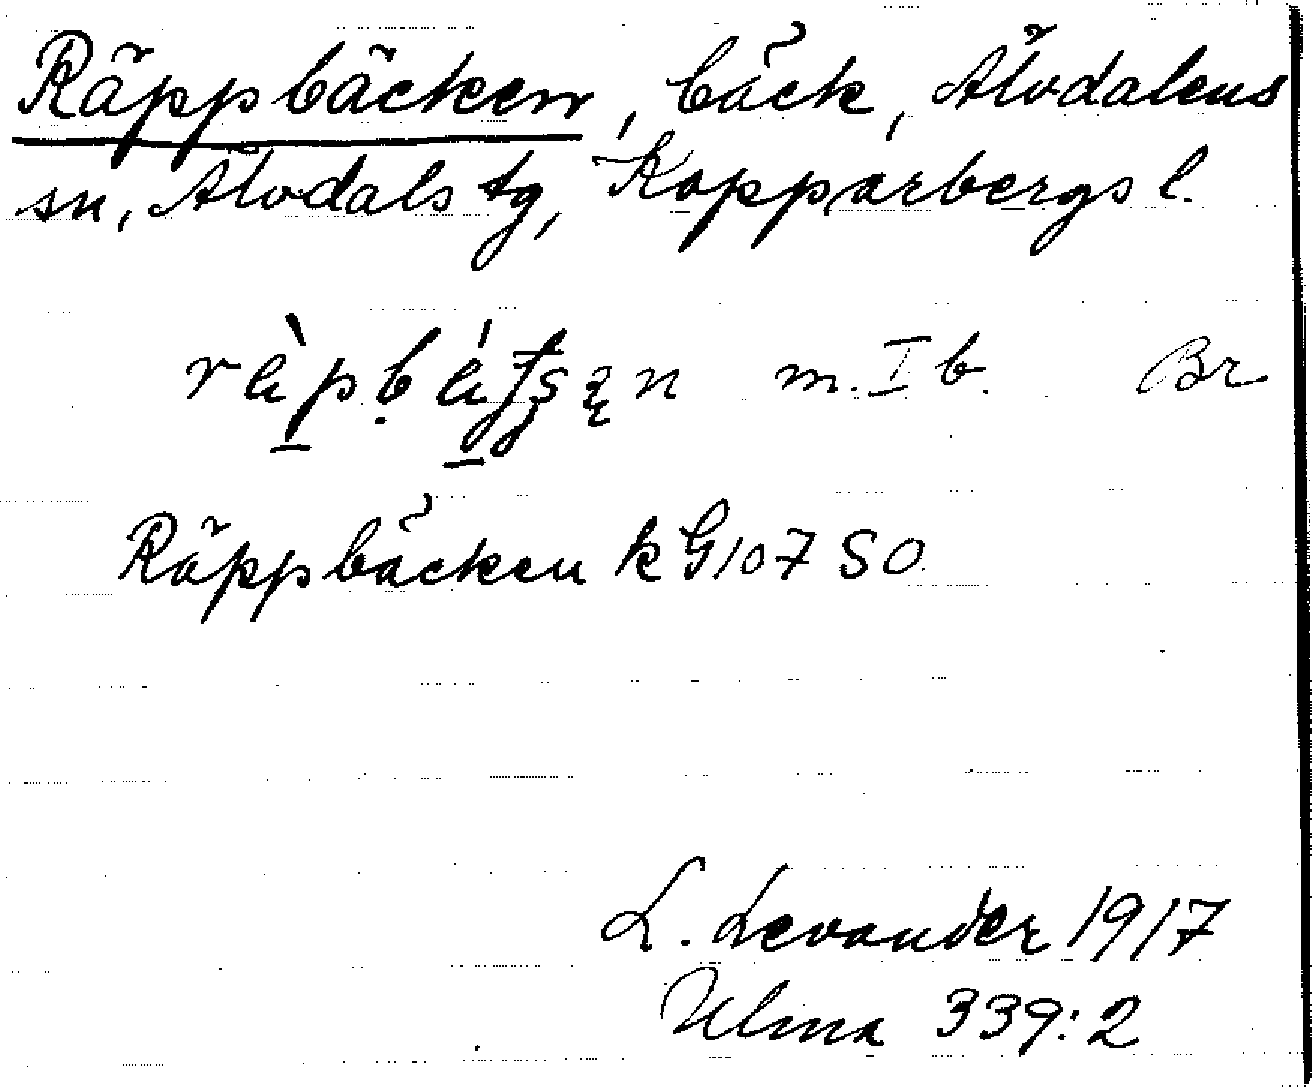 Räppbäcken, bäck, Älvdalens
sn, Älvdals tg, Kopparbergs l.
m. I b. Br
Räppbäcken k G107 SO
L. Levander 1917
Ulma 339:2